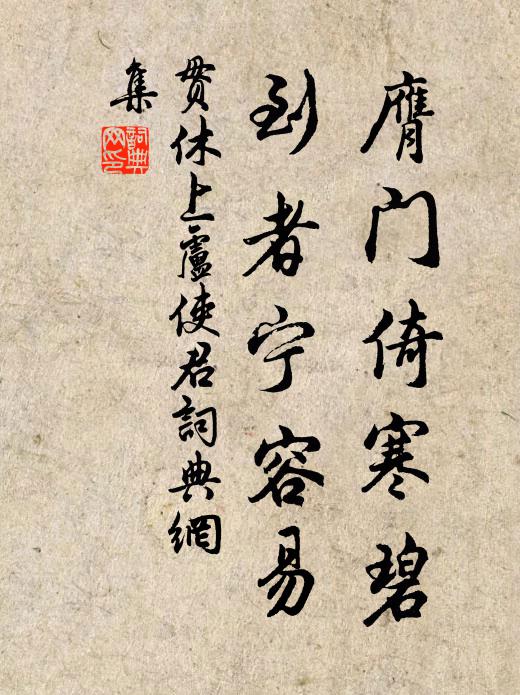 膺门倚寒碧
到者宁容易
贯休上卢使君詞典網
集
詞典网印